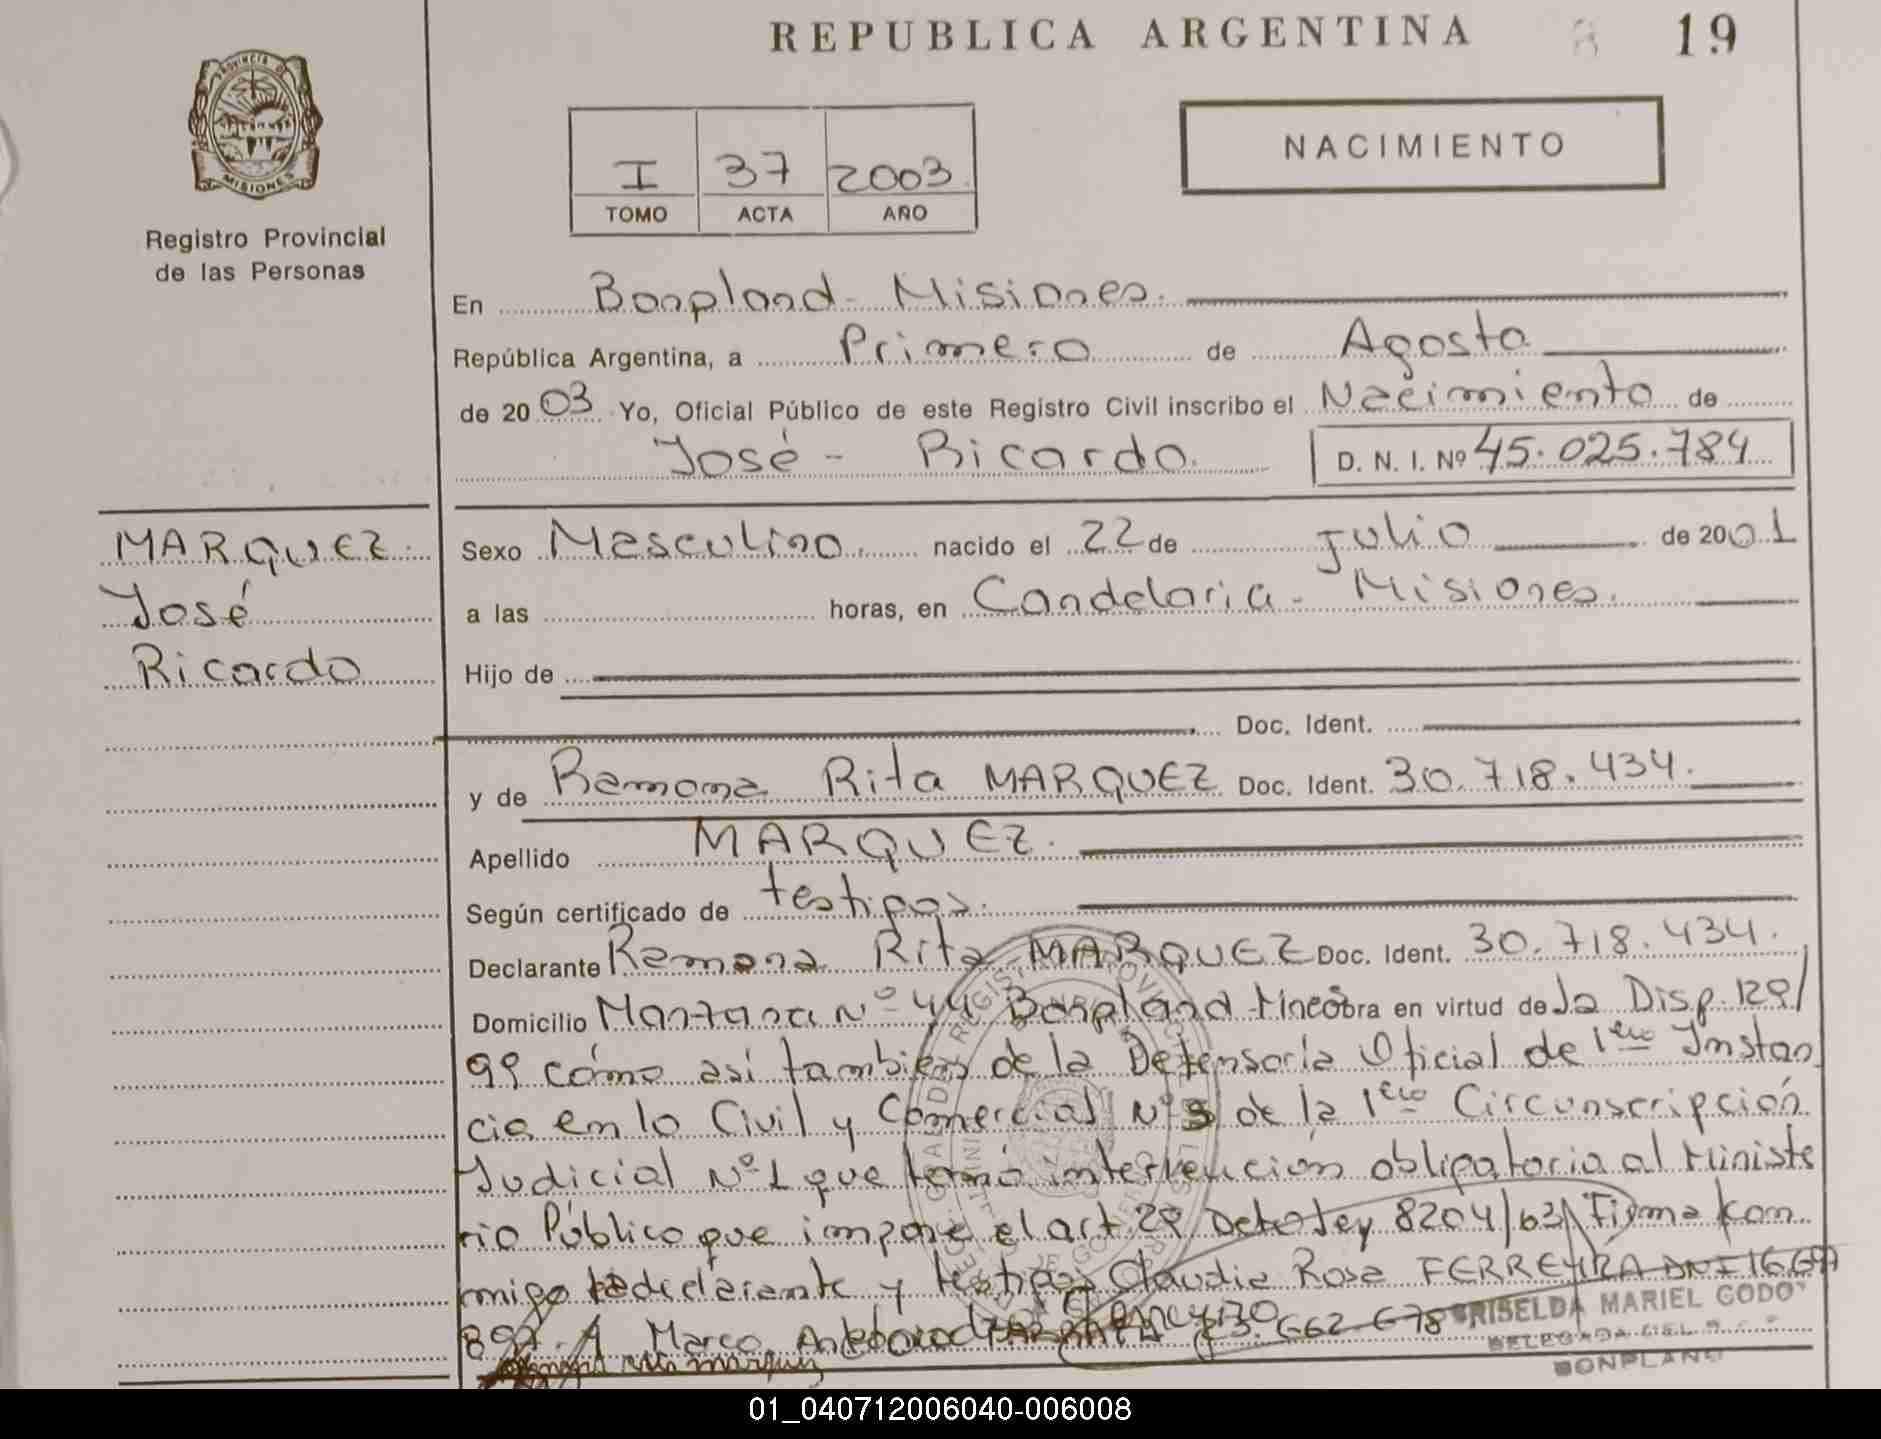 REPUBLICA ARGENTINA 19
PROVINCIA DE
MISIONES
Registro Provincial
de las Personas
I 37 2003
TOMO ACTA AÑO
NACIMIENTO
En Bonpland - Misiones.
República Argentina, a Primero de Agosto
de 2003 Yo, Oficial Público de este Registro Civil inscribo el Nacimiento de
José - Ricardo. D. N. I. Nº 45.025.784
MARQUEZ.
José
Ricardo
Sexo Masculino. nacido el 22 de Julio de 2001
a las horas, en Candelaria - Misiones.
Hijo de
Doc. Ident.
y de Ramona Rita MARQUEZ Doc. Ident. 30.718.434.
Apellido MARQUEZ.
Según certificado de testigos.
Declarante Ramona Rita MARQUEZ Doc. Ident. 30.718.434.
Domicilio Manzana Nº 44 Bonpland Mnes Obra en virtud de la Disp. 129/
99 cómo así tambien de la Defensoría Oficial de 1era Instan
cia en lo Civil y Comercial Nº 3 de la 1era Circunscripción
Judicial Nº 1 que tomó intervención obligatoria al Ministe
rio Público que impone el art. 29 Ley 8204/63 Firma con
migo declarante y testigos Claudia Rosa FERREYRA DNI
Marco 23.662.678
GRISELDA MARIEL GODOY
BONPLAND
01_040712006040-006008